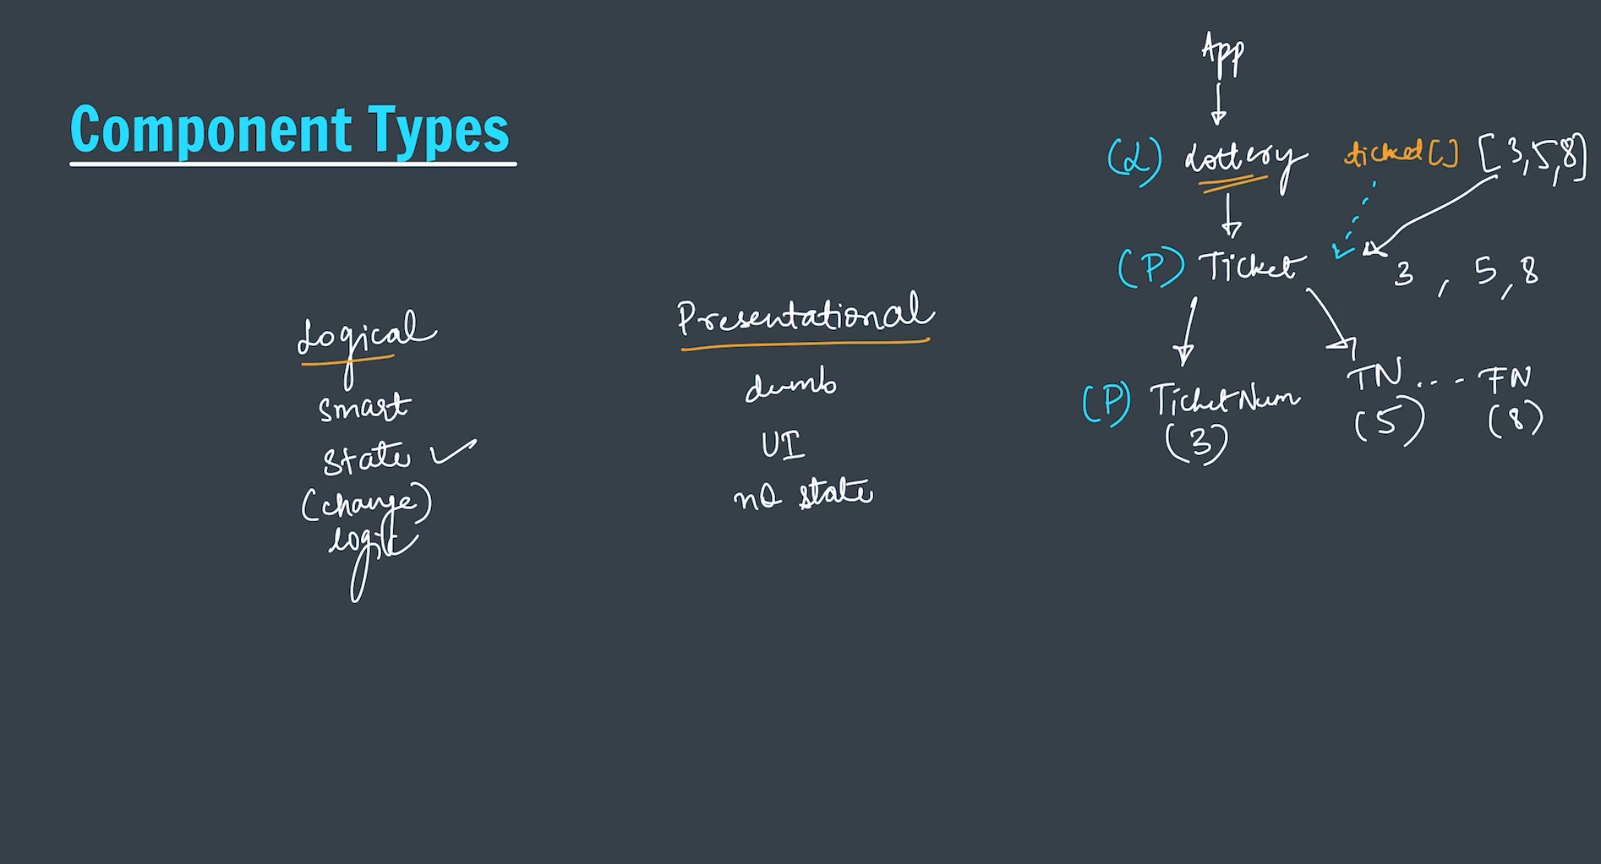 Component Types
Logical
Smart
State ✓
(change)
logic
Presentational
dumb
UI
no state
App
(L) Lottery ticket[] [3,5,8]
(P) Ticket 3, 5, 8
(P) TicketNum TN ... TN
(3) (5) (8)